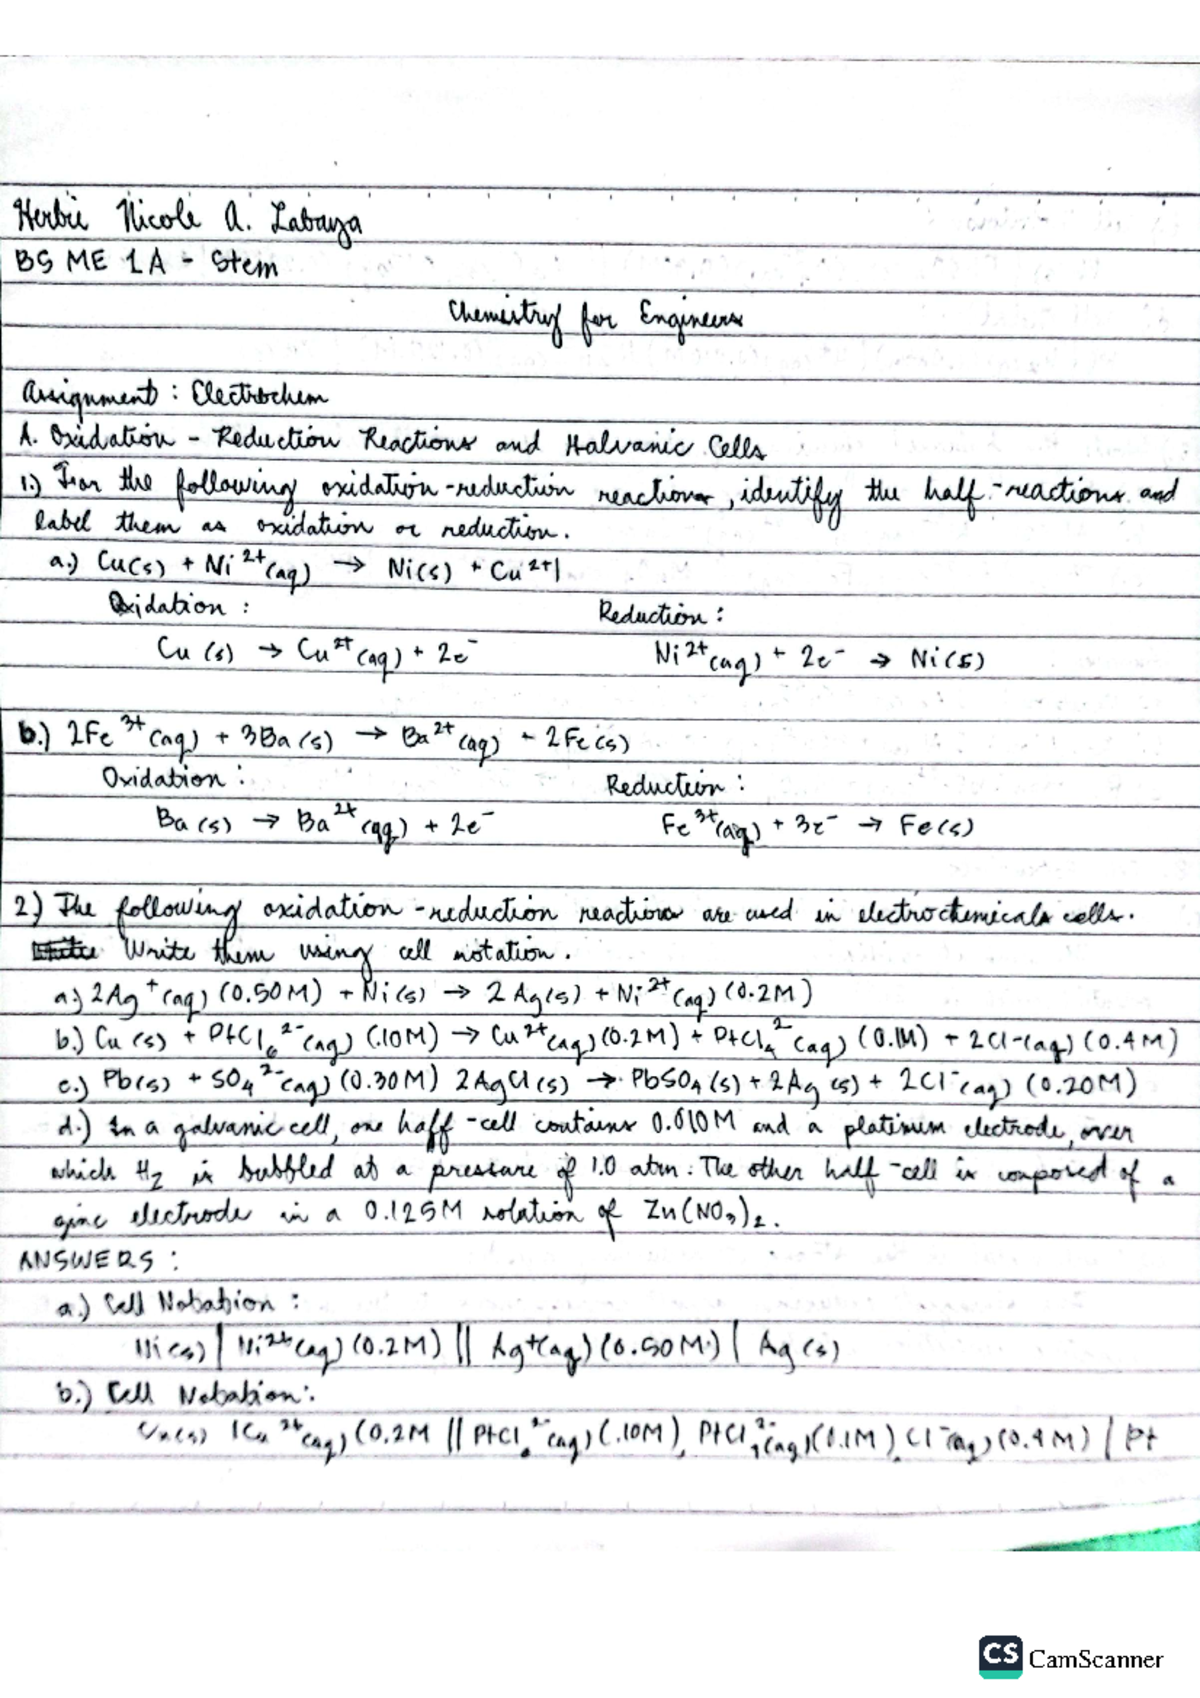 Herbie Nicole A. Labaya
BS ME 1A - Stem
Chemistry for Engineers
Assignment : Electrochem
A. Oxidation - Reduction Reactions and Halvanic Cells
1.) For the following oxidation-reduction reactions, identify the half-reactions and
label them as oxidation or reduction.
a.) Cu(s) + Ni²⁺(aq) → Ni(s) + Cu²⁺|
Oxidation : Reduction :
Cu (s) → Cu²⁺(aq) + 2e⁻ Ni²⁺(aq) + 2e⁻ → Ni(s)
b.) 2Fe³⁺(aq) + 3Ba(s) → Ba²⁺(aq) - 2Fe(s)
Oxidation : Reduction :
Ba(s) → Ba²⁺(aq) + 2e⁻ Fe³⁺(aq) + 3e⁻ → Fe(s)
2.) The following oxidation-reduction reactions are used in electrochemicals cells.
Write them using cell notation.
a.) 2Ag⁺(aq) (0.50M) + Ni(s) → 2Ag(s) + Ni²⁺(aq) (0.2M)
b.) Cu(s) + PtCl₆²⁻(aq) (.10M) → Cu²⁺(aq) (0.2M) + PtCl₄²(aq) (0.1M) + 2Cl-(aq) (0.4M)
c.) Pb(s) + SO₄²⁻(aq) (0.30M) 2AgCl(s) → PbSO₄(s) + 2Ag(s) + 2Cl⁻(aq) (0.20M)
d.) In a galvanic cell, one half-cell contains 0.010M and a platinum electrode, over
which H₂ is bubbled at a pressure of 1.0 atm. The other half-cell is composed of a
zinc electrode in a 0.125M solution of Zn(NO₃)₂.
ANSWERS :
a.) Cell Notation :
Ni(s) | Ni²⁺(aq) (0.2M) || Ag⁺(aq) (0.50M) | Ag(s)
b.) Cell Notation:
Cu(s) |Cu²⁺(aq) (0.2M || PtCl₆²⁻(aq) (.10M), PtCl₄²⁻(aq) (0.1M), Cl⁻(aq) (0.4M) | Pt
CS CamScanner